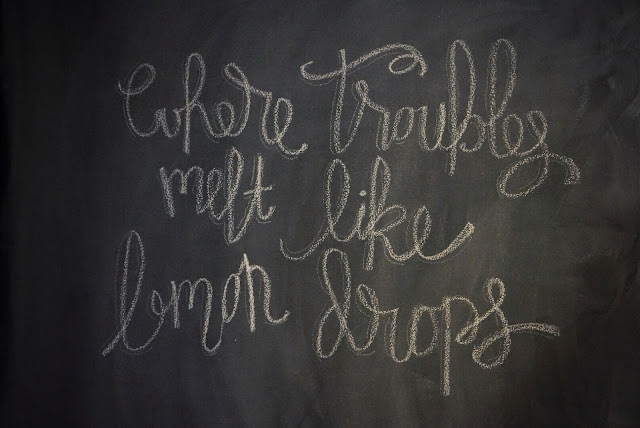 Where Troubles
melt like
lemon drops